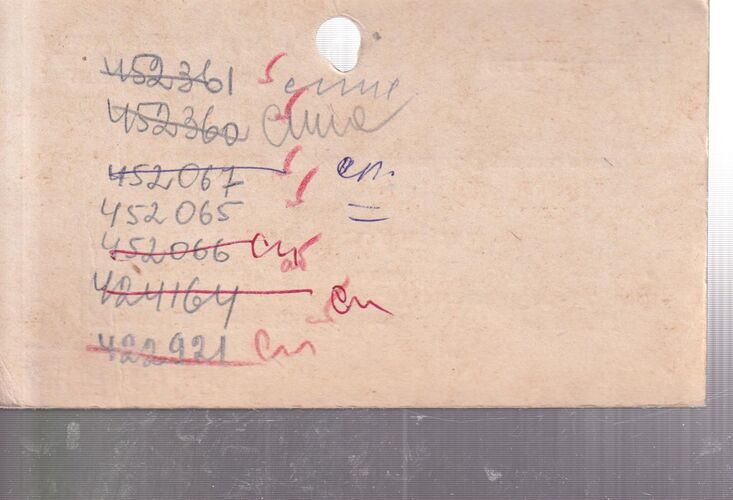 452361
452360
452067 сп.
452065
452066
424164 сп
422921 сп